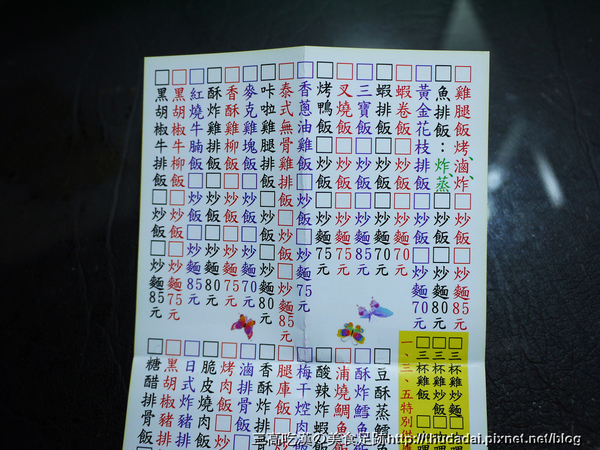 □雞腿飯烤、滷、炸□炒飯□炒麵85元
□魚排飯：炸、蒸□炒飯□炒麵80元
□黃金花枝排飯□炒飯□炒麵70元
□蝦卷飯□炒飯□炒麵70元
□蝦排飯□炒飯□炒麵70元
□三寶飯□炒飯□炒麵85元
□叉燒飯□炒飯□炒麵75元
□烤鴨飯□炒飯□炒麵75元
□香蔥油雞飯□炒飯□炒麵75元
□泰式無骨雞排飯□炒飯□炒麵85元
□咔啦雞腿排飯□炒飯□炒麵80元
□麥克雞塊飯□炒飯□炒麵70元
□香酥雞柳飯□炒飯□炒麵75元
□酥炸雞排飯□炒飯□炒麵80元
□紅燒牛腩飯□炒飯□炒麵85元
□黑胡椒牛柳飯□炒飯□炒麵75元
□黑胡椒牛排飯□炒飯□炒麵85元
□三杯雞炒麵
□三杯雞炒飯
□三杯雞飯
一、三、五特別供應
□豆酥蒸鱈
□酥炸鱈魚
□蒲燒鯛魚
□酸辣炸蝦
□梅干焢肉
□腿庫飯
□香酥炸排
□滷排骨飯
□烤肉飯□炒
□脆皮燒肉飯
□日式炸豬排
□黑胡椒豬排
□糖醋排骨飯
三高吃漢の美食足跡http://thudadai.pixnet.net/blog